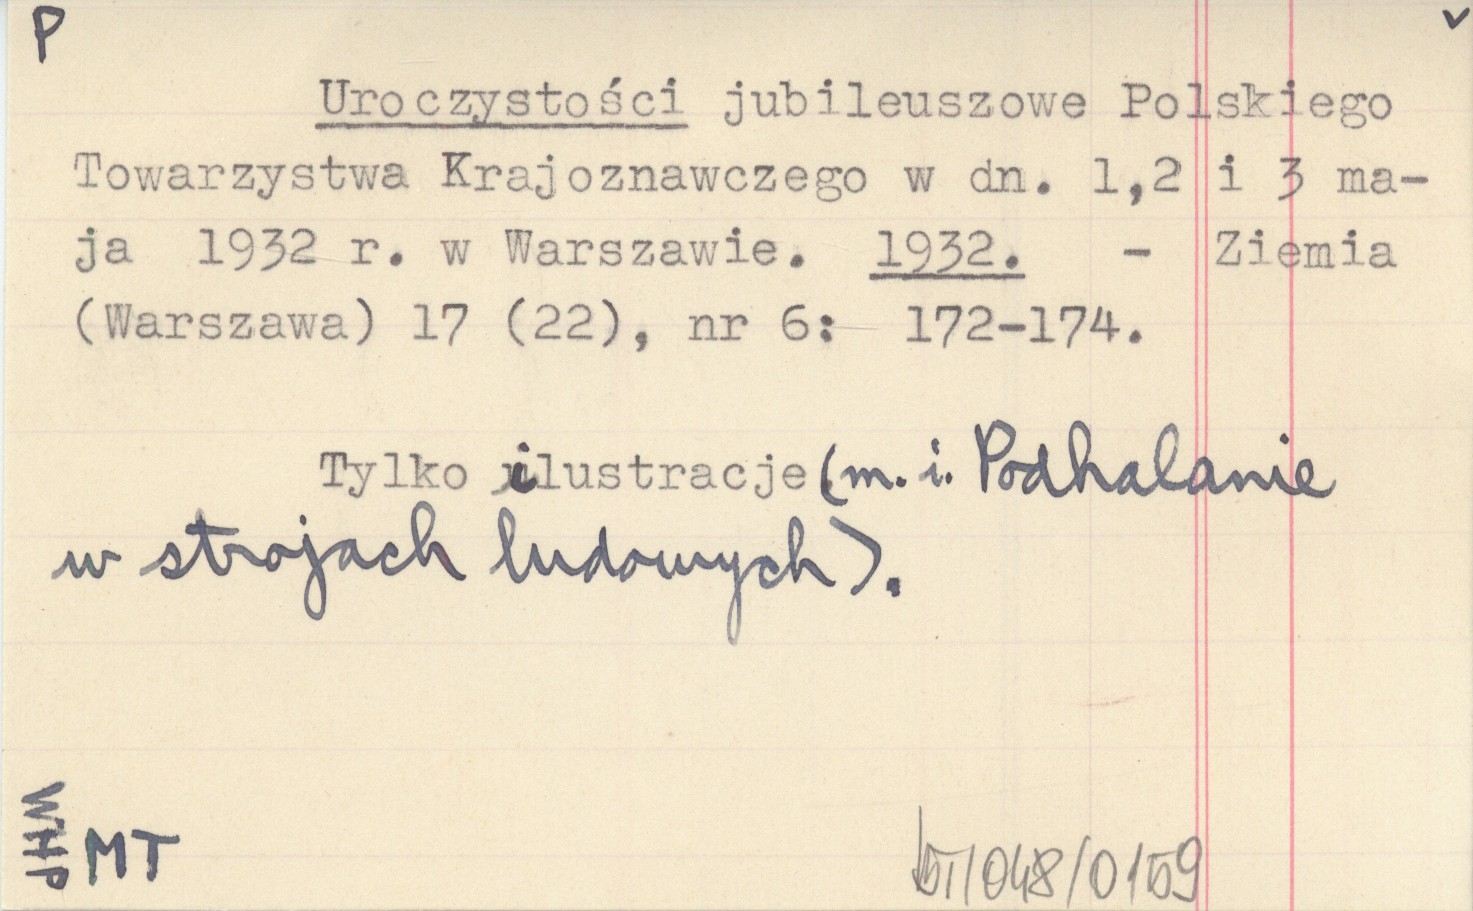 P v
Uroczystości jubileuszowe Polskiego
Towarzystwa Krajoznawczego w dn. 1,2 i 3 ma-
ja 1932 r. w Warszawie. 1932. - Ziemia
(Warszawa) 17 (22), nr 6: 172-174.
Tylko ilustracje (m. i. Podhalanie
w strojach ludowych).
WHP
MT
/048/0159